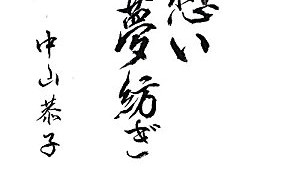 想い
夢紡ぎ
中山恭子